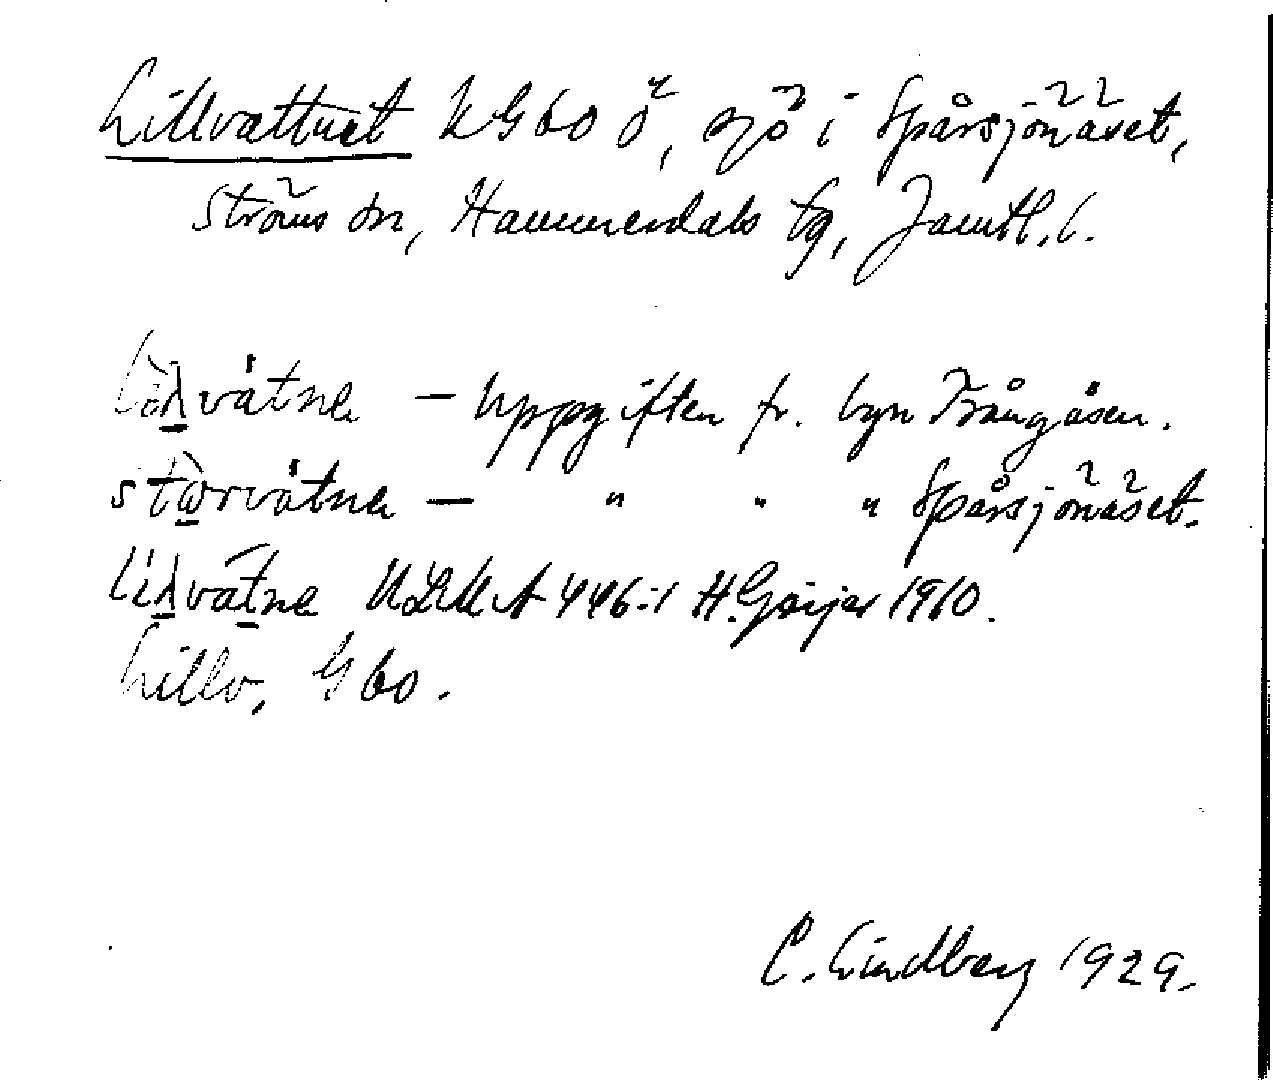 Lillvattnet KG60 ö, sjö i Spårsjönäset,
Ströms sn, Hammerdals tg, Jämtl. l.
vátne – Uppgiften fr. byn Trångåsen.
stǫ̀rvátne – " " " Spårsjönäset.
vatne ULMA 446:1 H. Geijer 1910.
Lillv, G60.
C. Lindberg 1929.